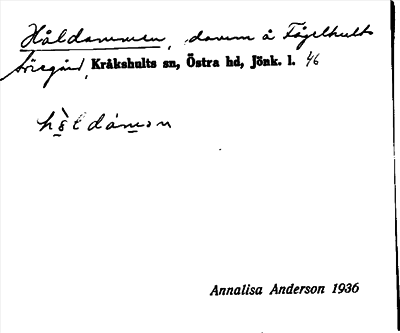 Håldammen, damm å Fågelhults
Sörgård, Kråkshults sn, Östra hd, Jönk. l. 46
Annalisa Anderson 1936